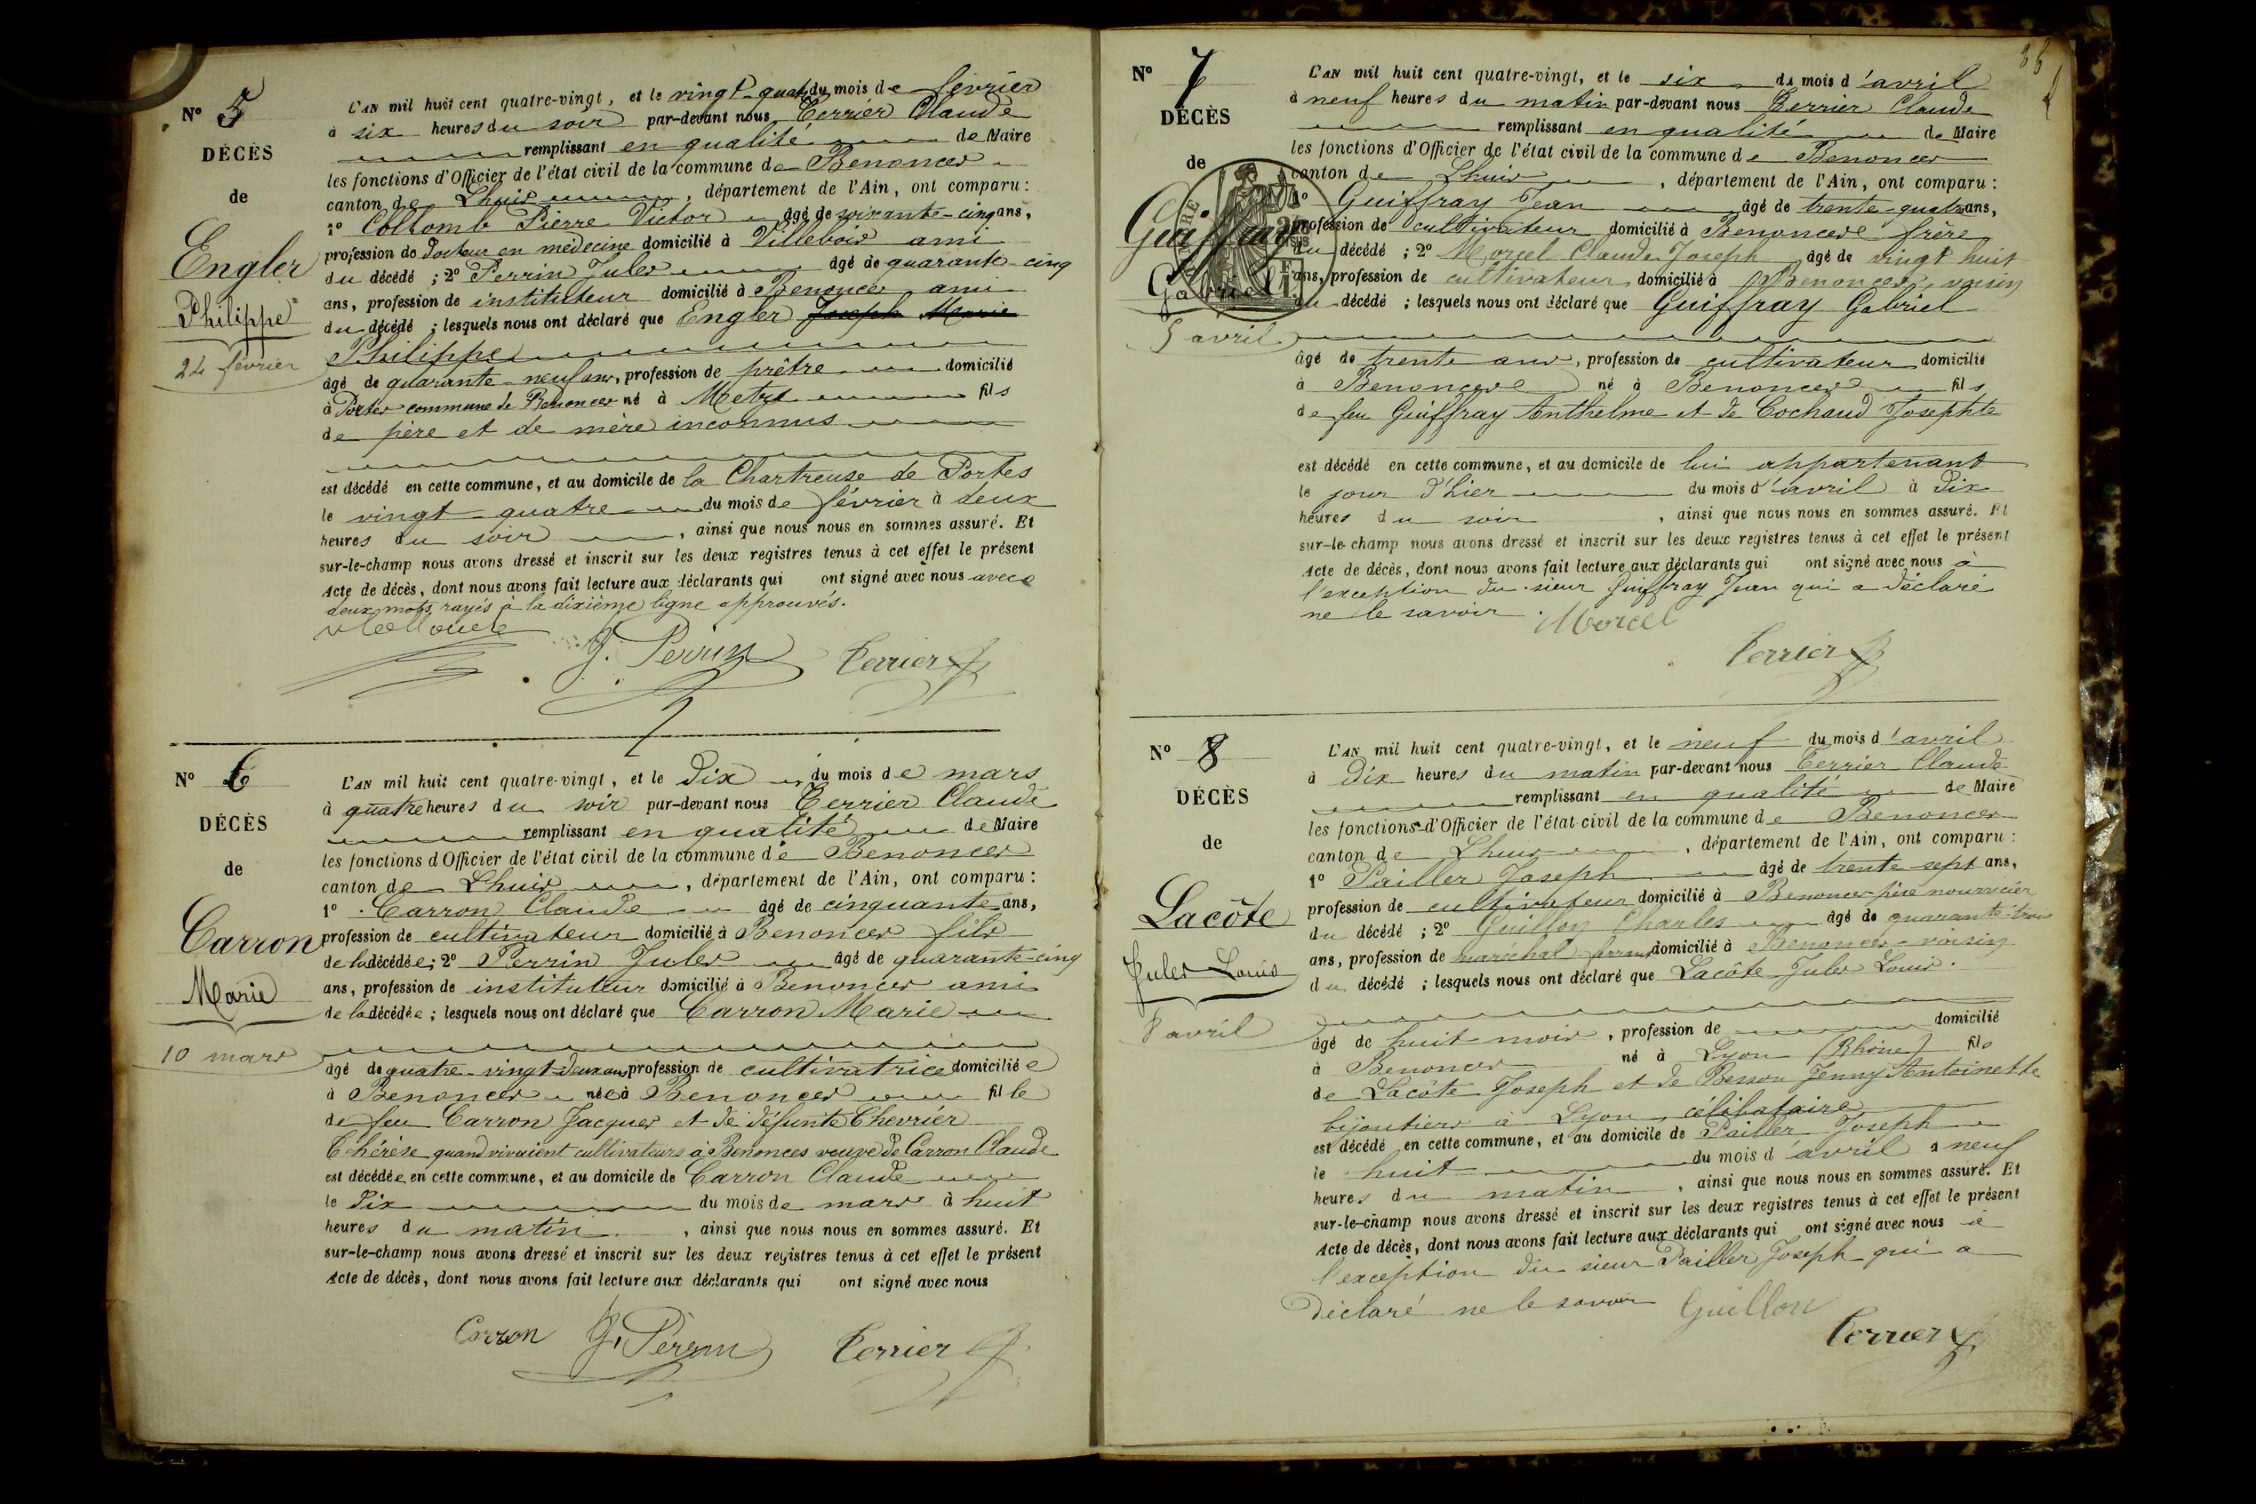 Nº 5
DÉCÈS
de
Engler
Philippe
24 février
L'AN mil huit cent quatre-vingt, et le vingt-quatre du mois de février
à six heures du soir par-devant nous Terrier Claude
remplissant en qualité de Maire
les fonctions d'Officier de l'état civil de la commune de Benonces
canton de Lhuis, département de l'Ain, ont comparu :
1º Collomb Pierre Victor âgé de soixante-cinq ans,
profession de Docteur en médecine domicilié à Villebois ami
du décédé ; 2º Perrin Jules âgé de quarante-cinq
ans, profession de instituteur domicilié à Benonces ami
du décédé ; lesquels nous ont déclaré que Engler Joseph Marie
Philippe
âgé de quarante-neuf ans, profession de prêtre domicilié
à Portes commune de Benonces né à Metz fils
de père et de mère inconnus
est décédé en cette commune, et au domicile de la Chartreuse de Portes
le vingt quatre du mois de février à deux
heures du soir, ainsi que nous nous en sommes assuré. Et
sur-le-champ nous avons dressé et inscrit sur les deux registres tenus à cet effet le présent
Acte de décès, dont nous avons fait lecture aux déclarants qui ont signé avec nous avec
deux mots rayés à la dixième ligne approuvés.
J. Perrin Terrier
Nº 6
DÉCÈS
de
Carron
Marie
10 mars
L'AN mil huit cent quatre-vingt, et le dix du mois de mars
à quatre heures du soir par-devant nous Terrier Claude
remplissant en qualité de Maire
les fonctions d'Officier de l'état civil de la commune de Benonces
canton de Lhuis, département de l'Ain, ont comparu :
1º Carron Claude âgé de cinquante ans,
profession de cultivateur domicilié à Benonces fils
de la décédée ; 2º Perrin Jules âgé de quarante-cinq
ans, profession de instituteur domicilié à Benonces ami
de la décédée ; lesquels nous ont déclaré que Carron Marie
âgé de quatre-vingt-deux ans profession de cultivatrice domiciliée
à Benonces née à Benonces fille
de feu Carron Jacques et de défunte Chevrier
Thérèse quand vivaient cultivateurs à Benonces veuve de Carron Claude
est décédée en cette commune, et au domicile de Carron Claude
le Dix du mois de mars à huit
heures du matin, ainsi que nous nous en sommes assuré. Et
sur-le-champ nous avons dressé et inscrit sur les deux registres tenus à cet effet le présent
Acte de décès, dont nous avons fait lecture aux déclarants qui ont signé avec nous
Carron J. Perrin Terrier
Nº 7
DÉCÈS
de
Guiffray
Gabriel
5 avril
L'AN mil huit cent quatre-vingt, et le six du mois d'avril
à neuf heures du matin par-devant nous Terrier Claude
remplissant en qualité de Maire
les fonctions d'Officier de l'état civil de la commune de Benonces
canton de Lhuis, département de l'Ain, ont comparu :
1º Guiffray Jean âgé de trente-quatre ans,
profession de cultivateur domicilié à Benonces frère
du décédé ; 2º Morcel Claude Joseph âgé de vingt huit
ans, profession de cultivateur domicilié à Benonces, voisin
du décédé ; lesquels nous ont déclaré que Guiffray Gabriel
âgé de trente ans, profession de cultivateur domicilié
à Benonces né à Benonces fils
de feu Guiffray Anthelme et de Cochaud Josephte
est décédé en cette commune, et au domicile de lui appartenant
le jour d'hier du mois d'avril à dix
heures du soir, ainsi que nous nous en sommes assuré. Et
sur-le-champ nous avons dressé et inscrit sur les deux registres tenus à cet effet le présent
Acte de décès, dont nous avons fait lecture aux déclarants qui ont signé avec nous à
l'exception du sieur Guiffray Jean qui a déclaré
ne le savoir. Morcel
Terrier
Nº 8
DÉCÈS
de
Lacôte
Jules Louis
8 avril
L'AN mil huit cent quatre-vingt, et le neuf du mois d'avril
à Dix heures du matin par-devant nous Terrier Claude
remplissant en qualité de Maire
les fonctions d'Officier de l'état civil de la commune de Benonces
canton de Lhuis, département de l'Ain, ont comparu :
1º Pailler Joseph âgé de trente-sept ans,
profession de cultivateur domicilié à Benonces père nourricier
du décédé ; 2º Guillon Charles âgé de quarante-trois
ans, profession de maréchal ferrant domicilié à Benonces voisin
du décédé ; lesquels nous ont déclaré que Lacôte Jules Louis.
âgé de huit mois, profession de domicilié
à Benonces né à Lyon (Rhône) fils
de Lacôte Joseph et de Besson Jenny Antoinette
bijoutiers à Lyon, célibataire
est décédé en cette commune, et au domicile de Pailler Joseph
le huit du mois d'avril à neuf
heures du matin, ainsi que nous nous en sommes assuré. Et
sur-le-champ nous avons dressé et inscrit sur les deux registres tenus à cet effet le présent
Acte de décès, dont nous avons fait lecture aux déclarants qui ont signé avec nous à
l'exception du sieur Pailler Joseph qui a
déclaré ne le savoir Guillon
Terrier